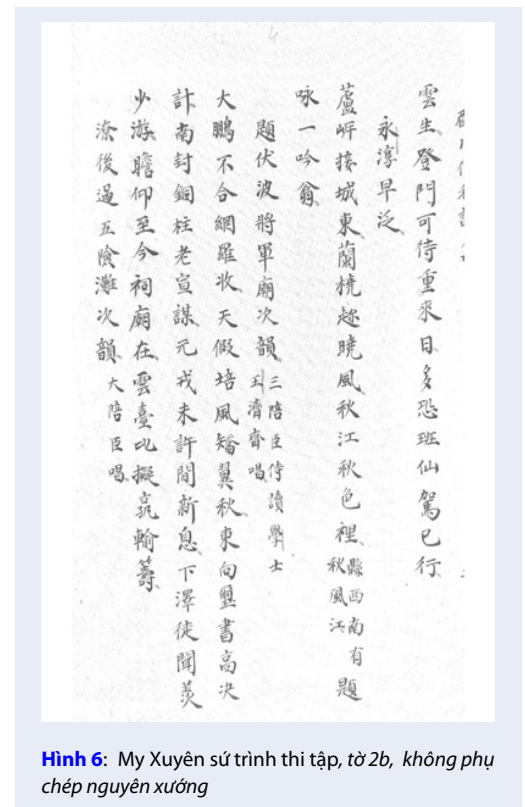 雲生登門可待重來日多恐班仙駕已行
永淳早泛
蘆岸接城東蘭橈趂曉風秋江秋色裡縣西南有秋風江題
咏一吟翁
題伏波將軍廟次韻三陪臣侍讀學士王濟齋唱
大鵬不合網羅收天假培風奮翼秋東向璽書高决
計南封銅柱老宣謀元戎未許閒新息下澤徒聞羡
少游瞻仰至今祠廟在雲臺比擬孰輸籌
潦後過五險灘次韻大陪臣唱
Hình 6: My Xuyên sứ trình thi tập, tờ 2b, không phụ
chép nguyên xướng